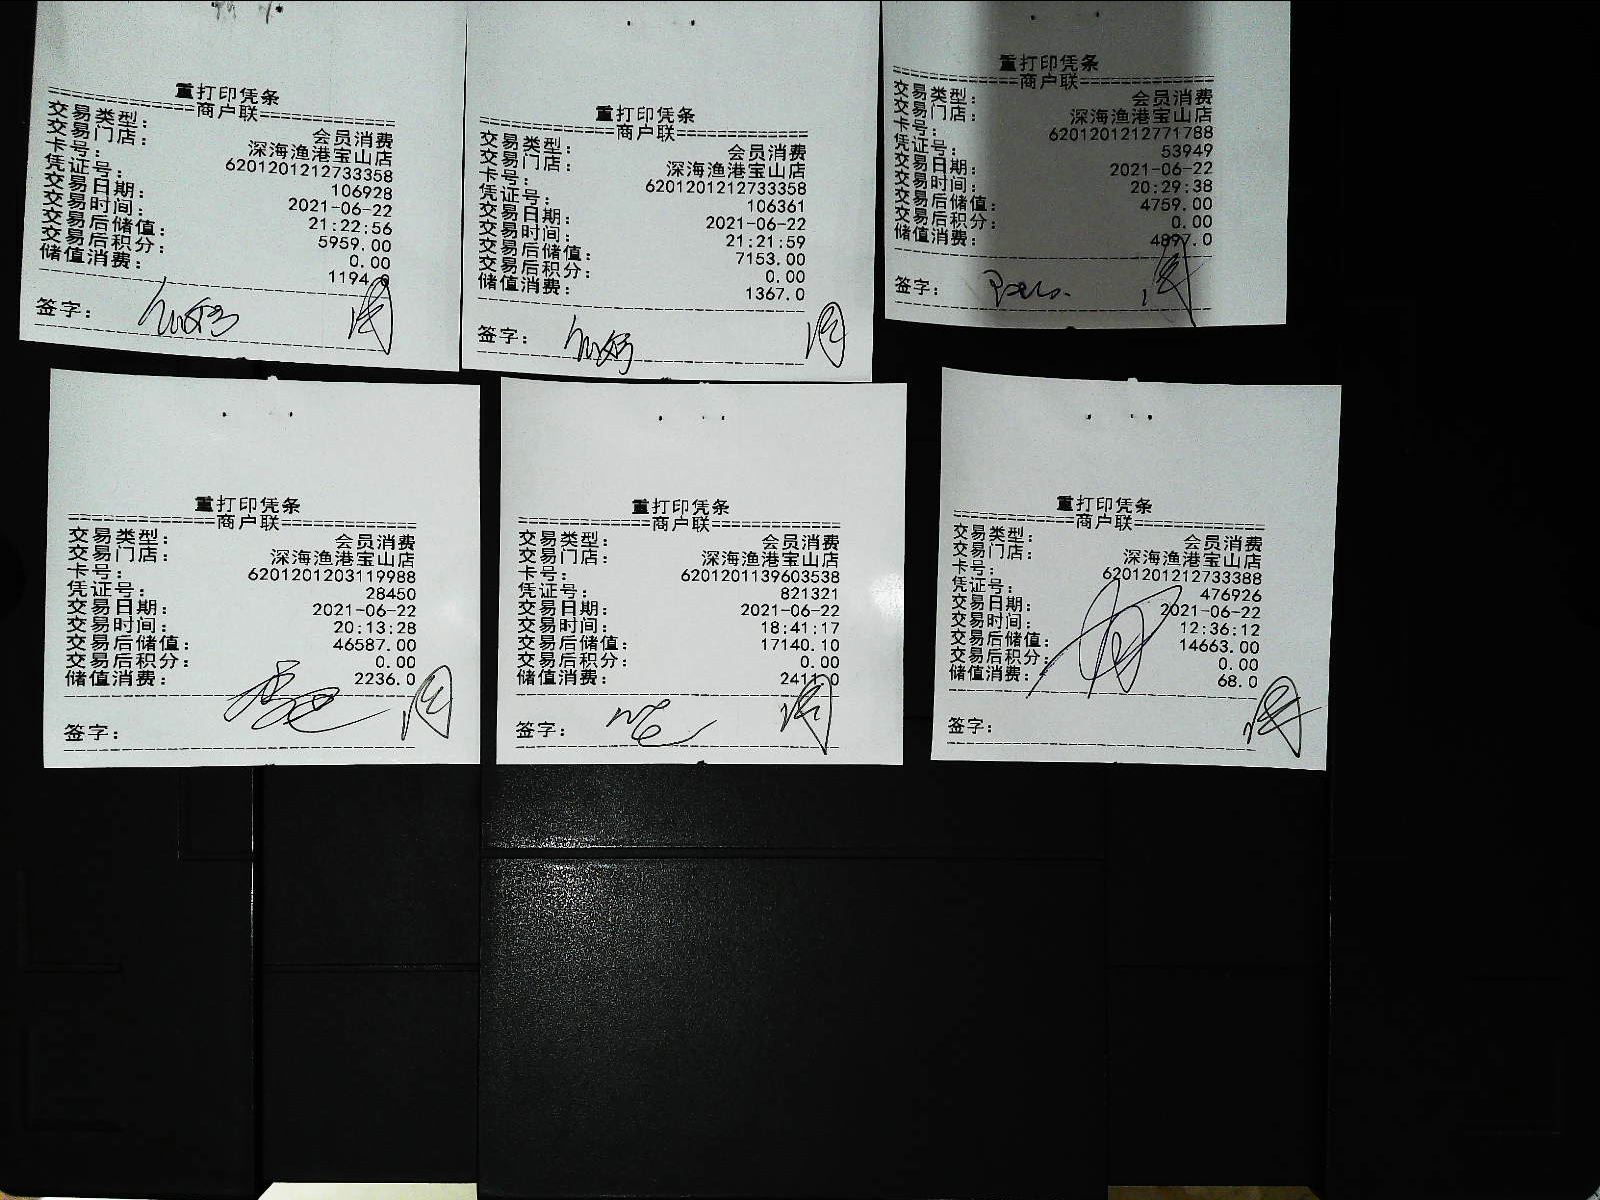 重打印凭条
================商户联================
交易类型： 会员消费
交易门店： 深海渔港宝山店
卡号： 6201201212733358
凭证号： 106928
交易日期： 2021-06-22
交易时间： 21:22:56
交易后储值： 5959.00
交易后积分： 0.00
储值消费： 1194.0
签字：
重打印凭条
================商户联================
交易类型： 会员消费
交易门店： 深海渔港宝山店
卡号： 6201201212733358
凭证号： 106361
交易日期： 2021-06-22
交易时间： 21:21:59
交易后储值： 7153.00
交易后积分： 0.00
储值消费： 1367.0
签字：
重打印凭条
================商户联================
交易类型： 会员消费
交易门店： 深海渔港宝山店
卡号： 6201201212771788
凭证号： 53949
交易日期： 2021-06-22
交易时间： 20:29:38
交易后储值： 4759.00
交易后积分： 0.00
储值消费： 4897.0
签字：
重打印凭条
================商户联================
交易类型： 会员消费
交易门店： 深海渔港宝山店
卡号： 6201201203119988
凭证号： 28450
交易日期： 2021-06-22
交易时间： 20:13:28
交易后储值： 46587.00
交易后积分： 0.00
储值消费： 2236.0
签字：
重打印凭条
================商户联================
交易类型： 会员消费
交易门店： 深海渔港宝山店
卡号： 6201201139603538
凭证号： 821321
交易日期： 2021-06-22
交易时间： 18:41:17
交易后储值： 17140.10
交易后积分： 0.00
储值消费： 2411.0
签字：
重打印凭条
================商户联================
交易类型： 会员消费
交易门店： 深海渔港宝山店
卡号： 6201201212733388
凭证号： 476926
交易日期： 2021-06-22
交易时间： 12:36:12
交易后储值： 14663.00
交易后积分： 0.00
储值消费： 68.0
签字：